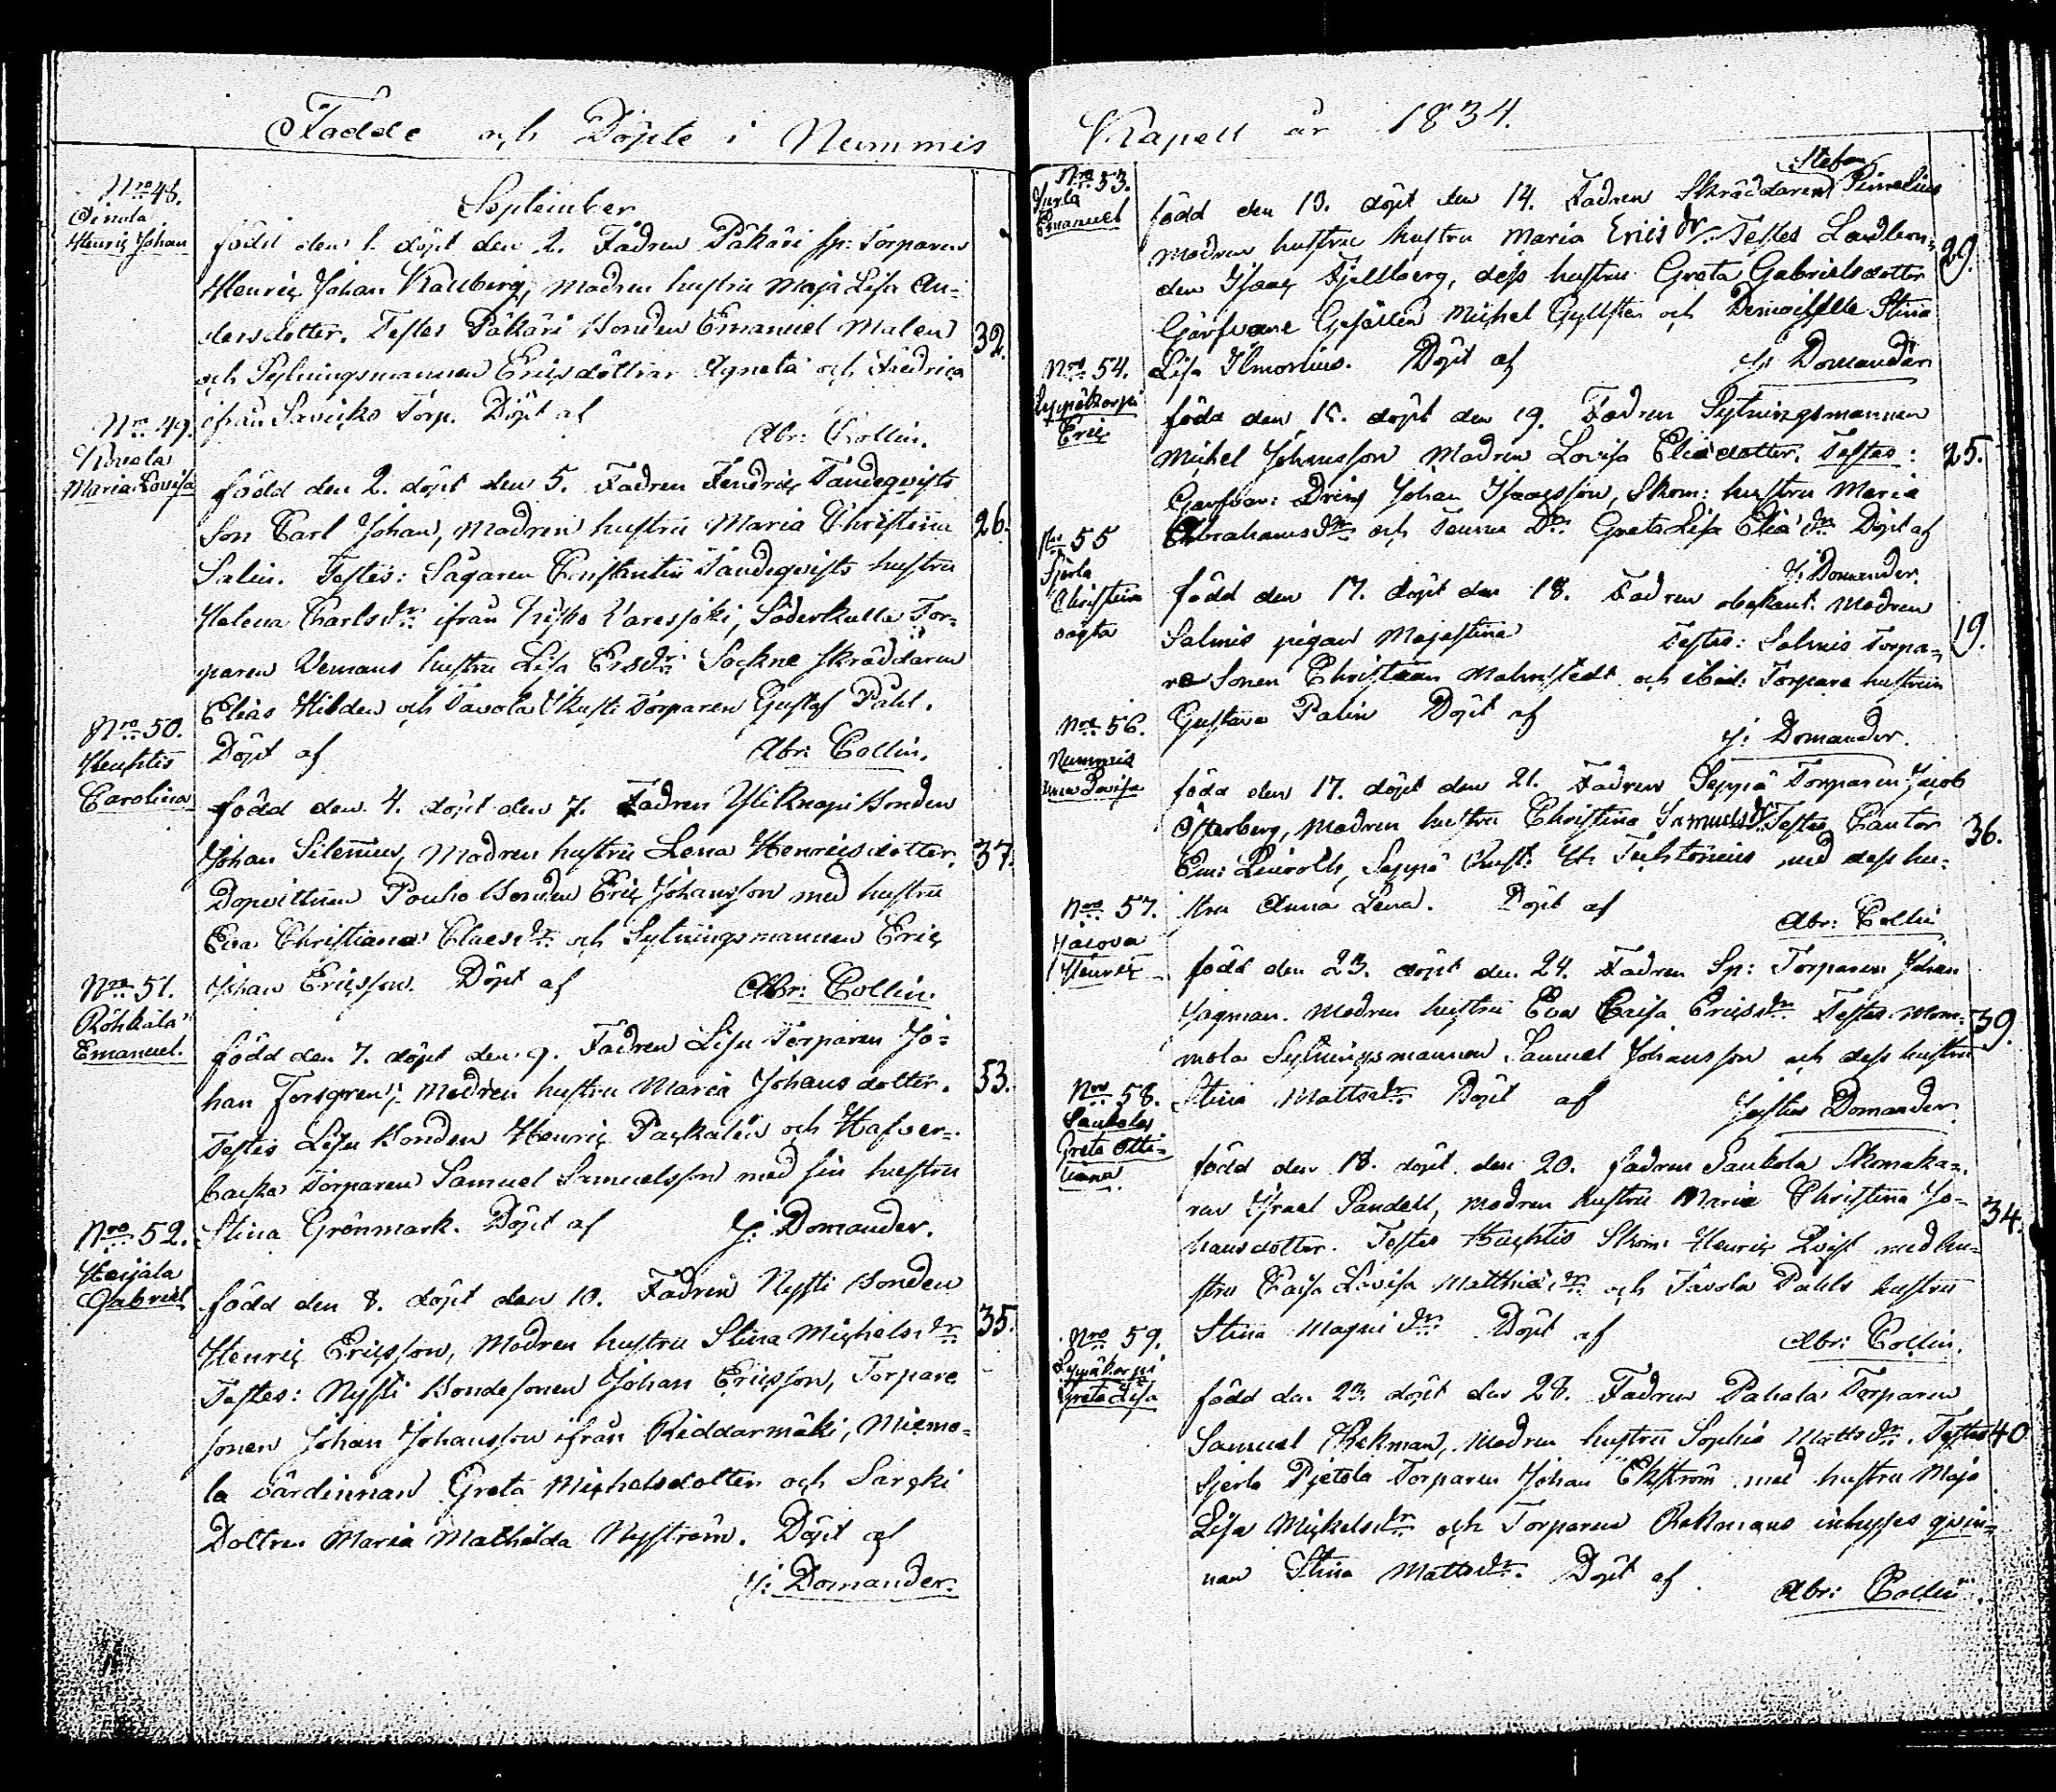 Födde och Döpte i Nummis
Nro 48.
Oinola
Henric Johan
September
född den 1. döpt den 2. Fadren Päkäri sp: Torparen
Henric Johan Kallberg, Modren hustru Maja Lisa An-
dersdotter. Testes Päkäri Bonden Emanuel Malen
och Sytningsmannen Ericsdöttrar Agneta och Fredrica
ifrån Torp. Döpt af
32.
Abr: Collin.
Nro 49.
Maria Lovisa
född den 2. döpt den 5. Fadren Fendric Tandeqvists
Son Carl Johan, Modren hustru Maria Christina
Salin. Testes: Sågaren Constantin Tandeqvists hustru
Helena Carlsdr ifrån Varesjoki, Söderkulla Tor-
paren Vemans hustru Lisa Ersdr Sockne skräddaren
Elias Hilden och Tavola Torparen Gustaf Pahl.
Döpt af
Abr: Collin.
26.
Nro 50.
Huhtis
Carolina
född den 4. döpt den 7. Fadren Yliknapi Bonden
Johan Silenius, Modren hustru Lena Henricsdotter.
Pouho Bonden Eric Johansson med hustru
Eva Christiana Claesdr och Sytningsmannen Eric
Johan Ericsson. Döpt af
Abr: Collin.
37.
Nro 51.
Röhkälä
Emanuel.
född den 7. döpt den 9. Fadren Lisu Torparen Jo-
han Forsgren, Modren hustru Maria Johansdotter.
Testes Lisu Bonden Henric Packalen och Hafver-
backa Torparen Samuel Samuelsson med sin hustru
Stina Grönmark. Döpt af
J: Domander.
53.
Nro 52.
Heijala
Gabriel
född den 8. döpt den 10. Fadren Nysti Bonden
Henric Ericsson, Modren hustru Stina Michelsdr
Testes: Nysti Bondesonen Johan Ericsson, Torpare
sonen Johan Johansson ifrån Riddarmäki, Miemo-
la värdinnan Greta Michelsdotter och Sarcki
Dottren Maria Mathilda Nyström. Döpt af
J: Domander.
35.
Kapell år 1834.
Nro 53.
Jurla
Emanuel
född den 13. döpt den 14. Fadren Skräddaren Stefan Pimelius
Modren hustru hustru Maria Ericsdr. Testes Landbon-
den Isaac Fjellberg, dess hustru Greta Gabrielsdotter
Garfvare Gesällen Michel Gyllsten och Demoiselle Stina
Lisa Ilmonius. Döpt af
J: Domander
29.
Nro 54.
Leppäkorpi
Eric
född den 15. döpt den 19. Fadren Sytningsmannen
Michel Johansson Modren Lovisa Eliædotter. Testes:
Garfvar: Dreng Johan Isaacsson, Skom: hustru Maria
Abrahamsdr och Greta Lisa Eliædr Döpt af
J: Domander.
25.
Nro 55
Fjärla
Christina
oägta
född den 17. döpt den 18. Fadren obekant. Modren
Salmis pigan Majastina Testes: Salmis Torpa-
re Sonen Christian Malmstedt och ibid: Torpare hustrun
Gustava Palin Döpt af
J: Domander.
19.
Nro 56.
Nummis
Lovisa
född den 17. döpt den 21. Fadren Seppä Torparen Jacob
Österberg, Modren hustru Christina Samuelsdr Testes Cantor
Em: Leinolth, Seppä med dess hu-
stru Anna Lena. Döpt af
Abr: Collin
36.
Nro 57.
Henric
född den 23. döpt den 24. Fadren Sp: Torparen Johan
Hagman. Modren hustru Eva Caisa Ericsdr. Testes Mom-
mola Sytningsmannen Samuel Johansson och dess hustru
Stina Mattsdr Döpt af
Justus Domander.
39.
Nro 58.
Saukola
Greta Otti-
liana.
född den 18. döpt den 20. fadren Saukola Skomaka-
ren Israel Sandell, Modren hustru Maria Christina Jo-
hansdotter. Testes Huhtis Skom: Henric Qvist med hu-
stru Caisa Lovisa Matthiædr och Tavola Pahls hustru
Stina Magnidr. Döpt af
Abr: Collin.
34.
Nro 59.
Leppäkorpi
Greta Lisa
född den 23 döpt den 28. Fadren Pakala Torparen
Samuel Ekman, Modren hustru Sophia Mattsdr. Testes
Sjerla Pietola Torparen Johan Ekström med hustru Maja
Lisa Mickelsdr och Torparen Rekmans inhyses qvin-
nan Stina Mattsdr. Döpt af
Abr: Collin.
40